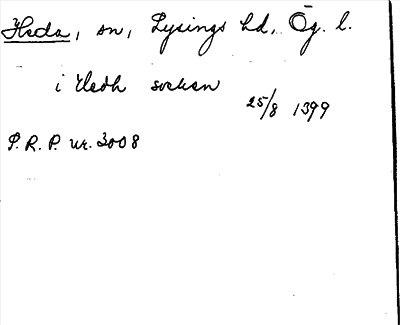 Heda, sn, Lysings hd, Ög. l.
i Hedh sockan
25/8 1399
P.R.P. nr. 3008